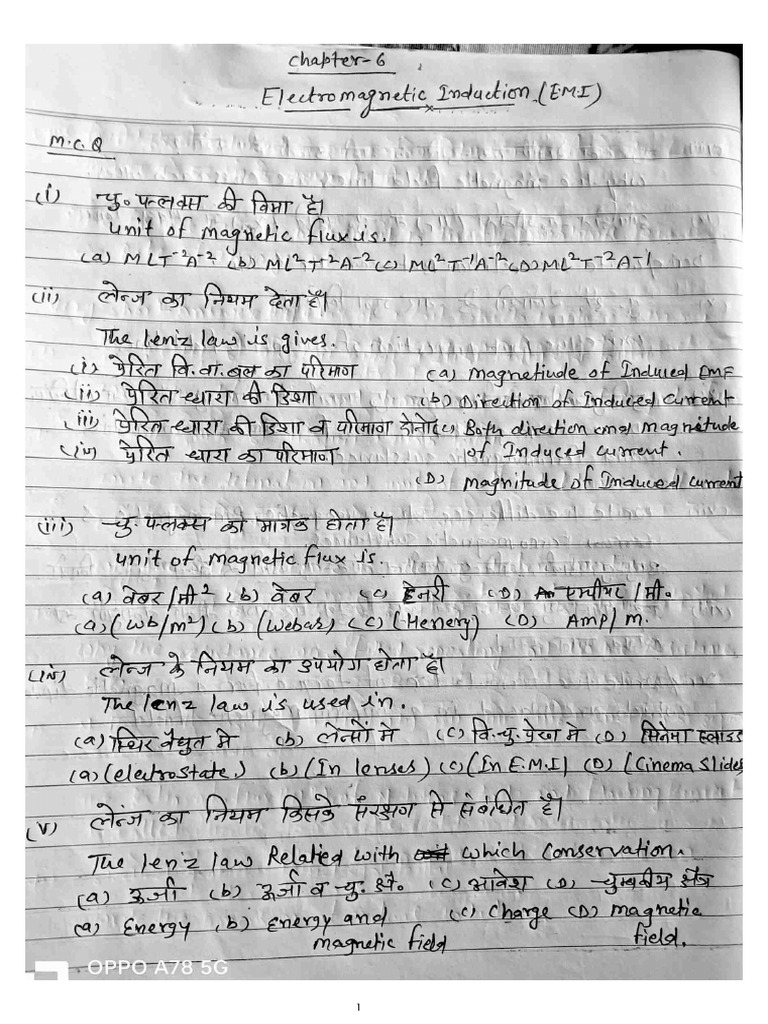 Chapter-6
Electromagnetic Induction (E.M.I)
M.C.Q
(i) चु० फ्लक्स की विमा है।
unit of magnetic flux is.
(a) MLT-2A-2 (b) ML2T2A-2 (c) ML2T-1A-2 (D) ML2T-2A-1
(ii) लेन्ज का नियम देता है।
The len'z law is gives.
(i) प्रेरित वि.वा.बल का परिमाण (a) magnetiude of Induced EMF
(ii) प्रेरित धारा की दिशा (b) Direction of Induced Current
(iii) प्रेरित धारा की दिशा व परिमाण दोनो (c) Both direction and magnetude
(iv) प्रेरित धारा का परिमाण of Induced current.
(D) magnitude of Induced current
(iii) चु. फ्लक्स का मात्रक होता है।
unit of magnetic flux is.
(a) वेबर/मी2 (b) वेबर (c) हेनरी (D) एम्पीयर/मी.
(a) (Wb/m2) (b) (Webas) (c) (Henery) (D) Amp/m.
(iv) लेन्ज के नियम का उपयोग होता है।
The lenz law is used in.
(a) स्थिर वैधुत मे (b) लेन्सों मे (c) वि.चु.प्रेरण मे (D) सिनेमा स्लाइड
(a) (electrostate.) (b) (In lenses) (c) (In E.M.I) (D) (Cinema Slides
(v) लेंज का नियम किसके संरक्षण से संबंधित है।
The len'z law Related with which conservation.
(a) ऊर्जा (b) ऊर्जा व चु. क्षै. (c) आवेश (D) चुम्बकीय क्षैत्र
(a) Energy (b) Energy and (c) Charge (D) magnetic
magnetic field field.
OPPO A78 5G
1